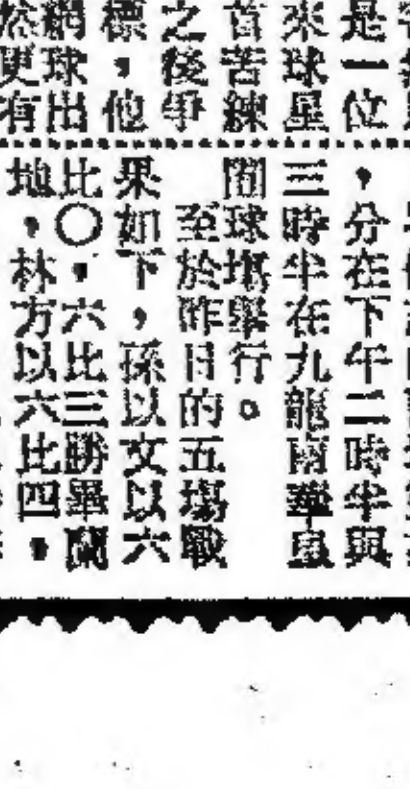 是一位
來球星
首苦練
之後爭
標，他
網球出
然更有
，分在下午二時半與
三時半在九龍南華
球塲舉行。
至於昨日的五塲戰
果如下，孫以文以六
比〇，六比三勝畢蘭
地，林方以六比四，